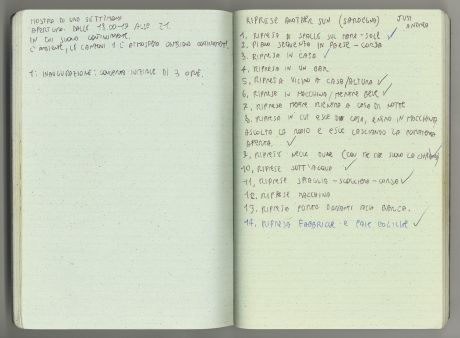 MOSTRA DI UNA SETTIMANA
APERTURA DALLE 18.00-19 ALLE 21.
IN CUI SUONO CONTINUAMENTE.
L'AMBIENTE, LE CANZONI E L'ATMOSFERA CAMBIANO CONTINUAMENTE.
1: INAUGURAZIONE: CONCERTO INIZIALE DI 3 ORE.
RIPRESE ANOTHER SUN (SARDEGNA) JUST
ANDREA
1, RIPRESA DI SPALLE SUL MARE-SOLE
2, PIANO SEQUENZA IN PARTE-CORSA
3, RIPRESA IN CASA
4, RIPRESA IN UN BAR
5, RIPRESA VICINO A CASA/ALTURA
6, RIPRESE IN MACCHINA/MENTRE BEVE
7, RIPRESA MENTRE RIENTRA A CASA DI NOTTE
8, RIPRESA IN CUI ESCE DA CASA, ENTRO IN MACCHINA
ASCOLTO LA RADIO E ESCE LASCIANDO LA PORTIERA
APERTA.
9, RIPRESE NELLE DUNE (CON ME CHE SUONO LA CHITARRA)
10, RIPRESE SOTT'ACQUA
11, RIPRESE SPIAGGIA-SCOGLIERA-CORSA
12, RIPRESE MACCHINA
13, RIPRESA PORTO DAVANTI ALLA BARCA.
14, RIPRESA FABBRICHE E PALE EOLICHE